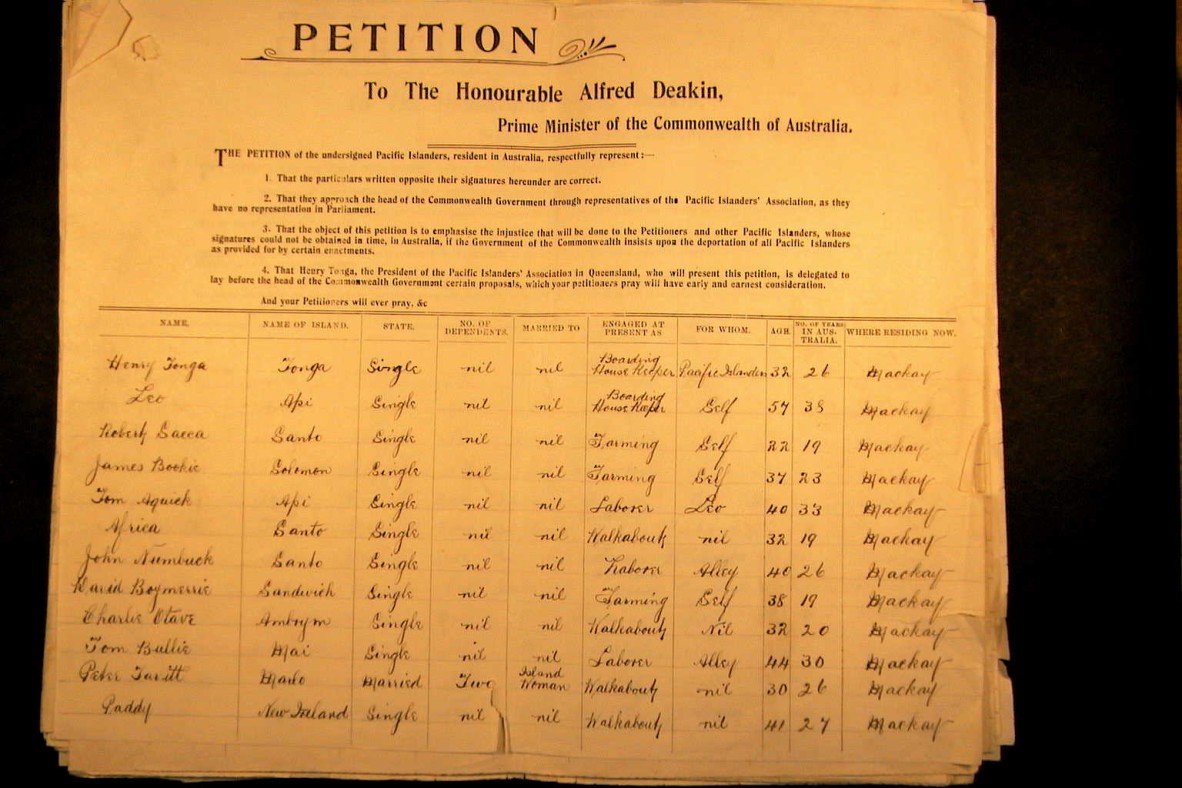 PETITION
To The Honourable Alfred Deakin,
Prime Minister of the Commonwealth of Australia.
THE PETITION of the undersigned Pacific Islanders, resident in Australia, respectfully represent :—
1. That the particulars written opposite their signatures hereunder are correct.
2. That they approach the head of the Commonwealth Government through representatives of the Pacific Islanders' Association, as they
have no representation in Parliament.
3. That the object of this petition is to emphasise the injustice that will be done to the Petitioners and other Pacific Islanders, whose
signatures could not be obtained in time, in Australia, if the Government of the Commonwealth insists upon the deportation of all Pacific Islanders
as provided for by certain enactments.
4. That Henry Tonga, the President of the Pacific Islanders' Association in Queensland, who will present this petition, is delegated to
lay before the head of the Commonwealth Government certain proposals, which your petitioners pray will have early and earnest consideration.
And your Petitioners will ever pray, &c
NAME. NAME OF ISLAND. STATE. NO. OF DEPENDENTS. MARRIED TO ENGAGED AT PRESENT AS FOR WHOM. AGE. NO. OF YEARS IN AUSTRALIA. WHERE RESIDING NOW.
Henry Tonga Tonga Single nil nil Boarding House Keeper Pacific Islanders 32 26 Mackay
Leo Api Single nil nil Boarding House Keeper Self 57 Mackay
Robert Santo Single nil nil Farming Self 22 19 Mackay
James Bookie Solomon Single nil nil Farming Self 37 23 Mackay
Tom Aquick Api Single nil nil Laborer Leo 40 33 Mackay
Africa Santo Single nil nil Walkabout nil 32 19 Mackay
John Numbuck Santo Single nil nil Laborer Alley 40 26 Mackay
David Boymerrie Sandwich Single nil nil Farming Self 38 19 Mackay
Charlie Otave Ambrym Single nil nil Walkabout Nil 32 20 Mackay
Tom Bullie Mai Single nil nil Laborer Alley 44 30 Mackay
Peter Malo Married Two Island Woman Walkabout nil 30 26 Mackay
Paddy New Ireland Single nil nil Walkabout nil 41 27 Mackay